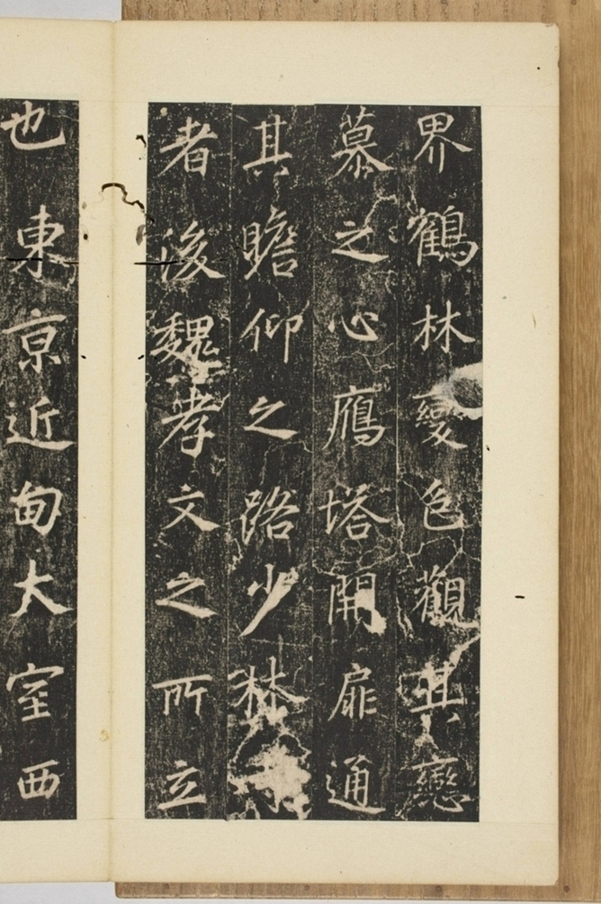 界鶴林變色觀其戀
慕之心鴈塔開扉通
其瞻仰之路少林寺
者後魏孝文之所立
也東京近甸大室西